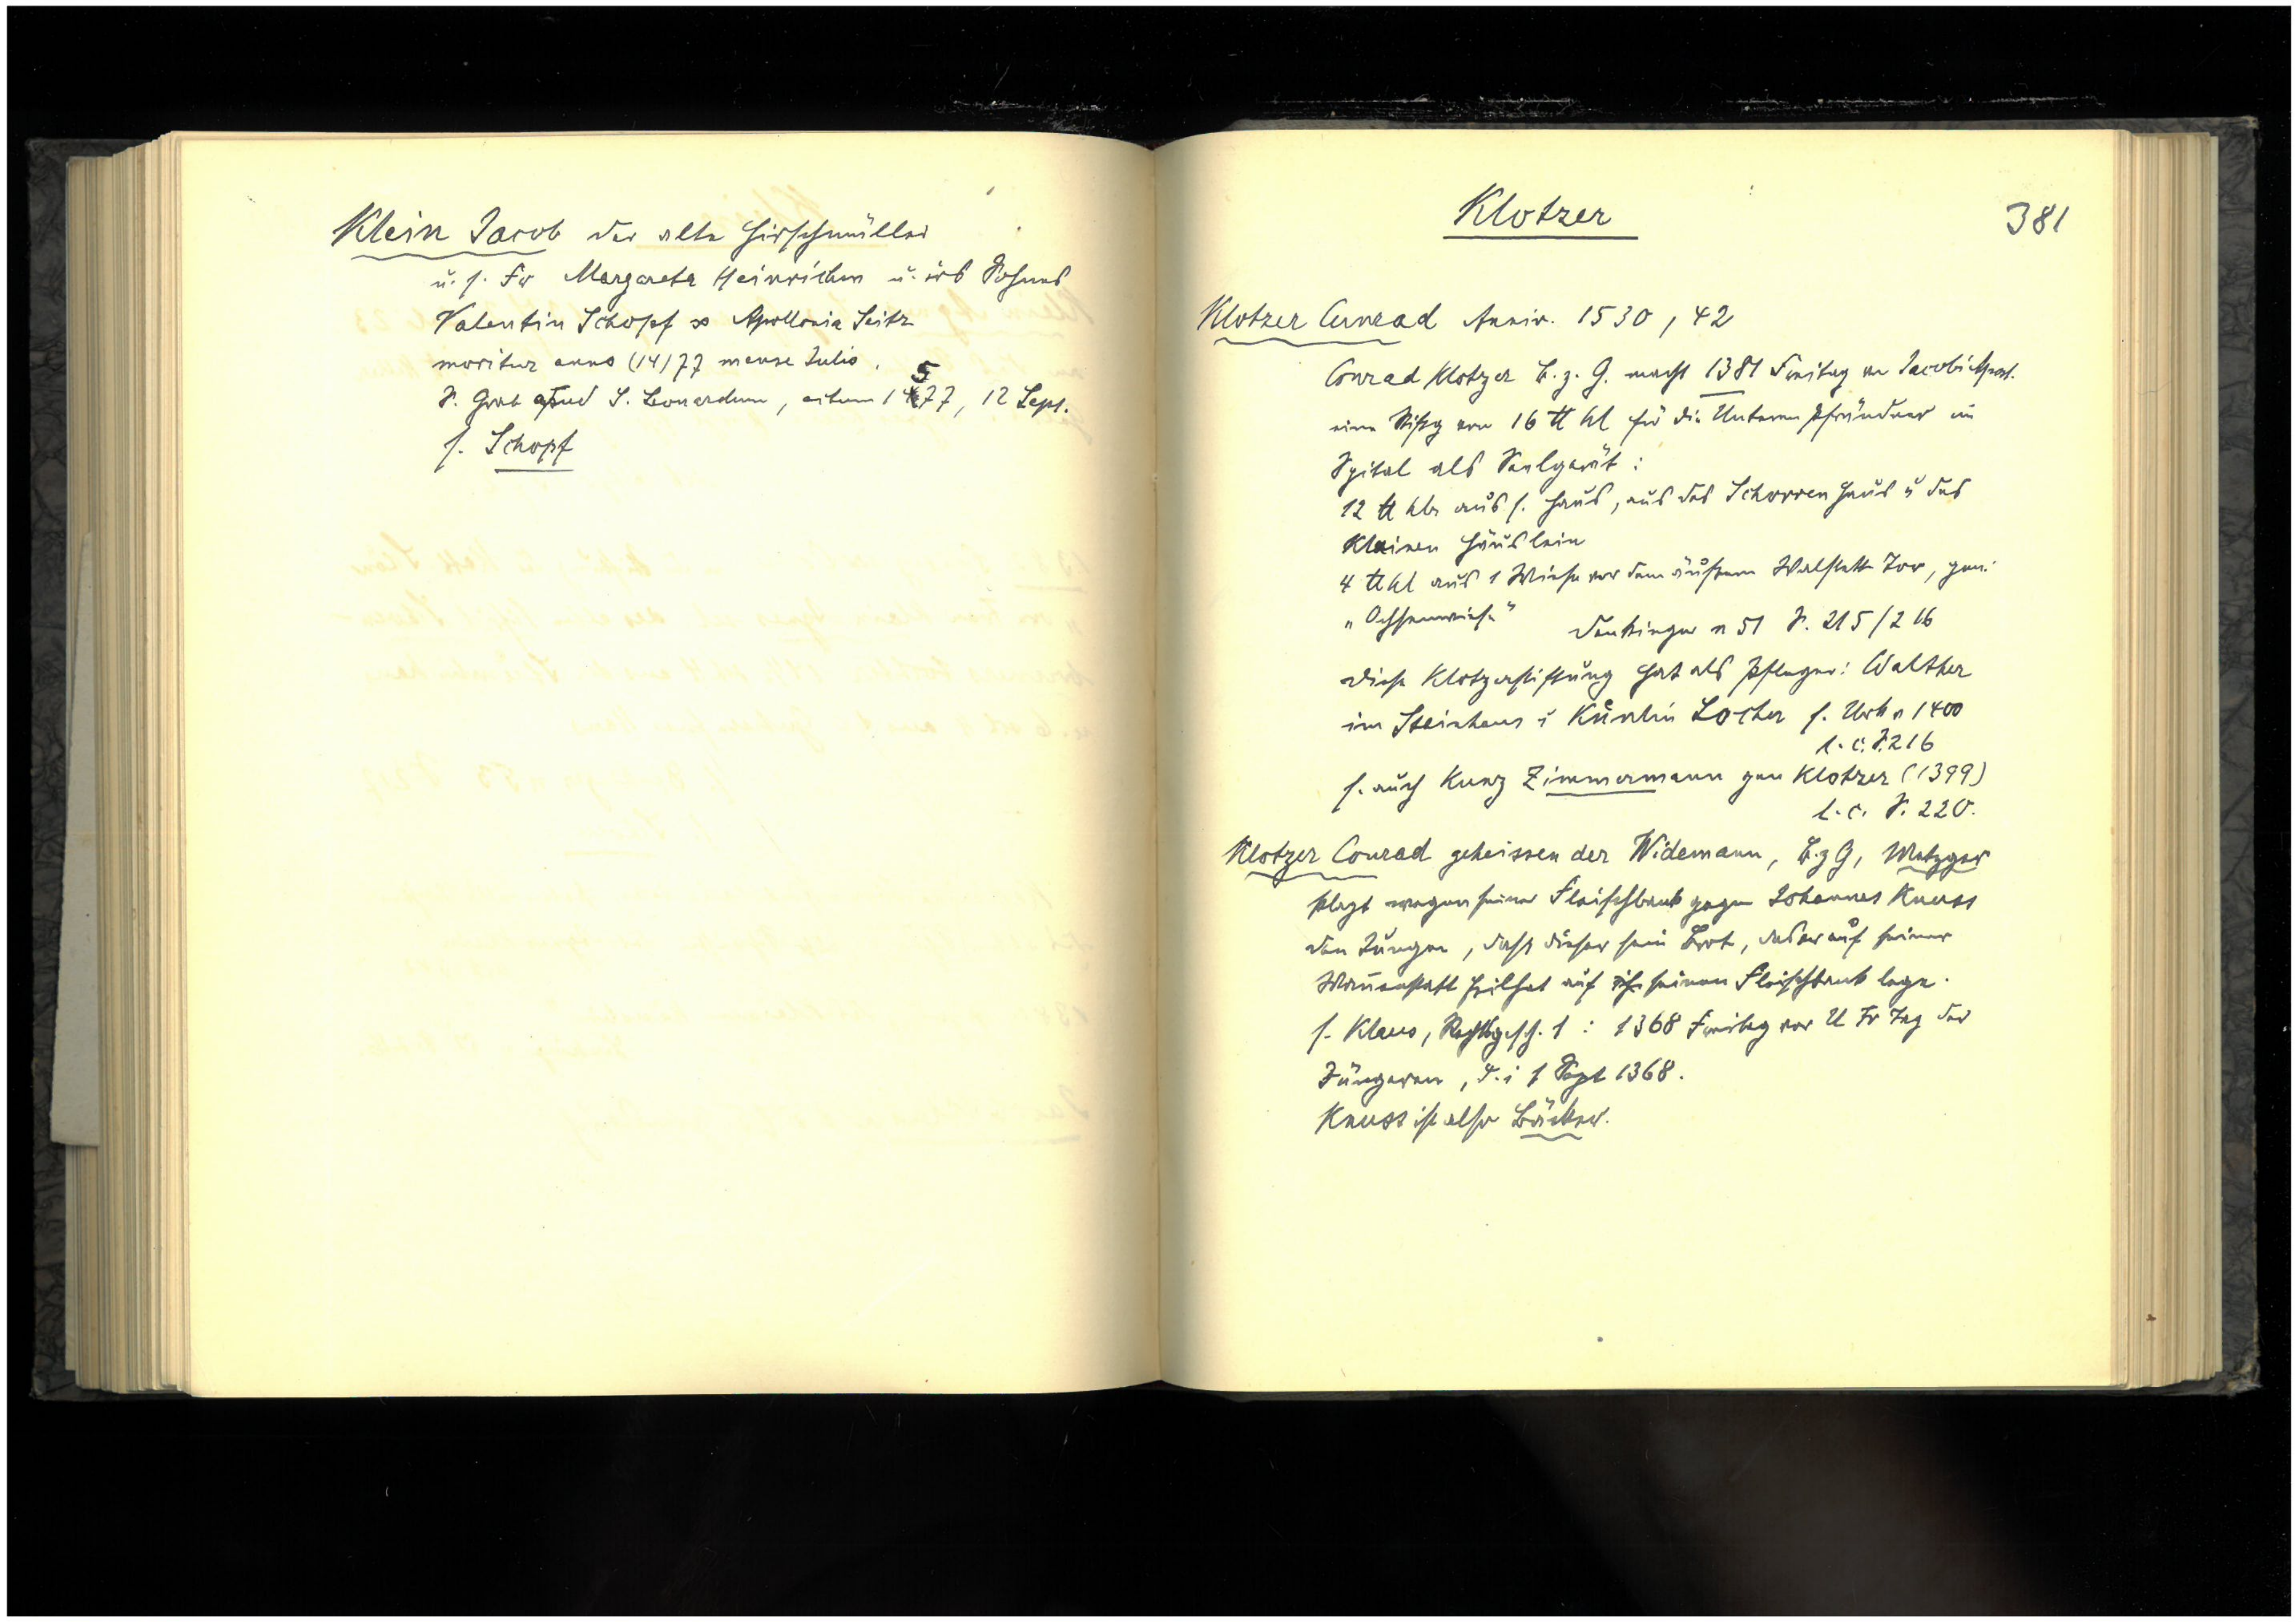 Klein Jacob der alte Hirschmüller
u. s. Fr Margareta Heinrichen u. irs Sohnes
Valentin Schopf ∞ Apollonia Seitz
moritur anno (14)77 mense Julio.
S. Grab apud S. Leonardum, 1577, 12 Sept.
s. Schopf
Klotzer
381
Klotzer Cunrad Anniv. 1530, 42
Conrad Klotzer B. z. G. macht 1381 Freitag an Jacobi Apost.
eine Stiftg von 16 ℔ hl für die Unteren Pfründner im
Spital als Seelgerät:
12 ℔ hlr aus s. Haus, aus des Schorren Haus u des
Kleinen Häuslein
4 ℔ hl aus 1 Wiese vor dem äußern Walstett Tor, gen.
„Ochsenwiese"
Denkinger n 51 S. 215/216
Diese Klotzerstiftung hat als Pfleger: Walther
im Steinhaus u Kůnlin Locher s. Urk n 1400
l. c. S. 216
s. auch Kunz Zimmermann gen Klotzer (1399)
l. c. S. 220.
Klotzer Conrad geheissen der Widemann, B. z G, Metzger
klagt wegen seiner Fleischbank gegen Johannes Knuss
den Jungen, dass dieser sein Brot, das er auf seiner
Wannenstatt feil hat auf seinen Fleischbank lege.
s. Klaus, Rechtsgesch. 1: 1368 Freitag vor U Fr Tag der
Jüngeren, d. i 1 Sept 1368.
Knuss ist also Bäcker.